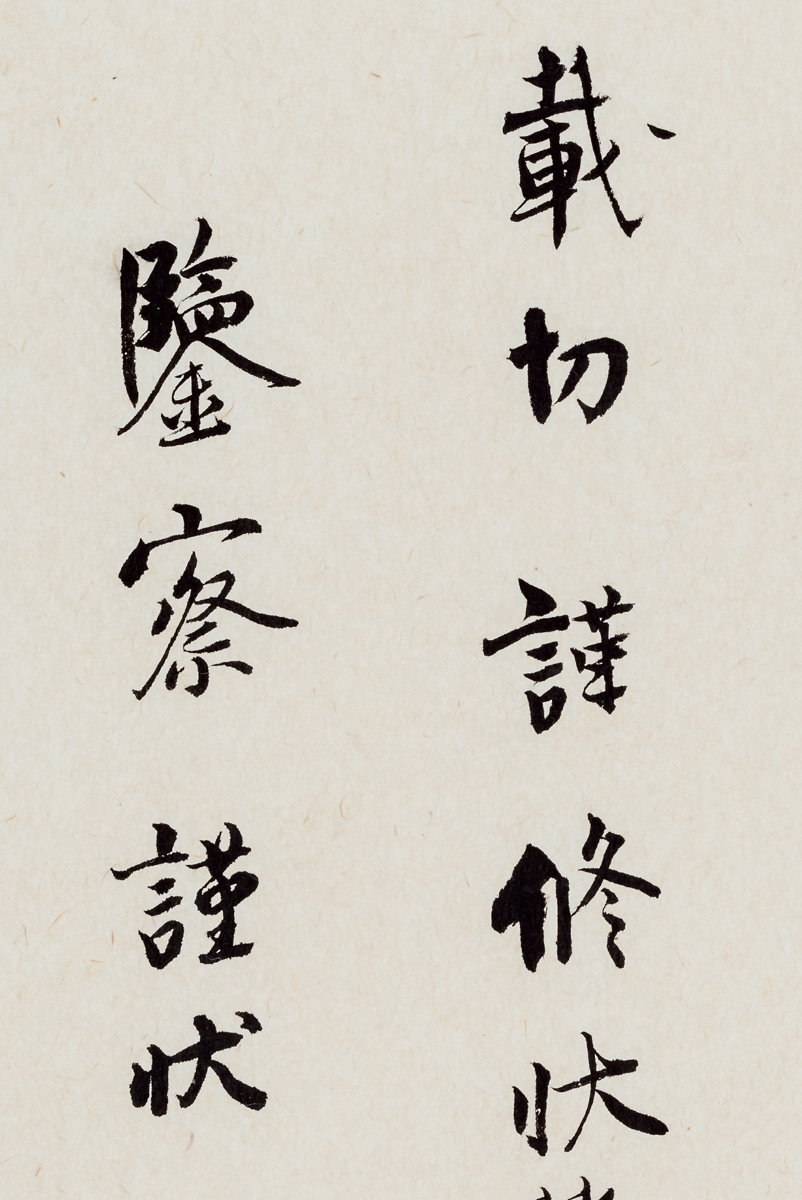 載切謹修狀
鑒察謹狀